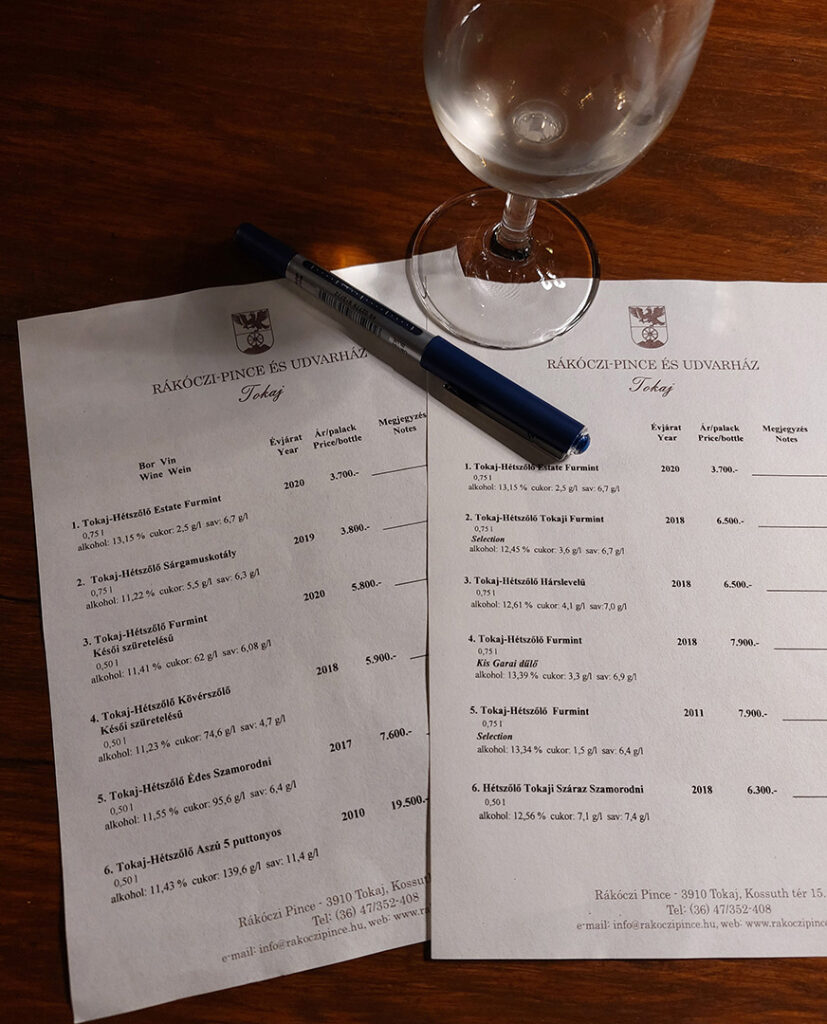 RÁKÓCZI-PINCE ÉS UDVARHÁZ
Tokaj
Bor Vin
Wine Wein
Évjárat
Year
Ár/palack
Price/bottle
Megjegyzés
Notes
1. Tokaj-Hétszőlő Estate Furmint 2020 3.700.-
0,75 l
alkohol: 13,15 % cukor: 2,5 g/l sav: 6,7 g/l
2. Tokaj-Hétszőlő Sárgamuskotály 2019 3.800.-
0,75 l
alkohol: 11,22 % cukor: 5,5 g/l sav: 6,3 g/l
3. Tokaj-Hétszőlő Furmint 2020 5.800.-
Késői szüretelésű
0,50 l
alkohol: 11,41 % cukor: 62 g/l sav: 6,08 g/l
4. Tokaj-Hétszőlő Kövérszőlő 2018 5.900.-
Késői szüretelésű
0,50 l
alkohol: 11,23 % cukor: 74,6 g/l sav: 4,7 g/l
5. Tokaj-Hétszőlő Édes Szamorodni 2017 7.600.-
0,50 l
alkohol: 11,55 % cukor: 95,6 g/l sav: 6,4 g/l
6. Tokaj-Hétszőlő Aszú 5 puttonyos 2010 19.500.-
0,50 l
alkohol: 11,43 % cukor: 139,6 g/l sav: 11,4 g/l
Rákóczi Pince - 3910 Tokaj, Kossuth
Tel: (36) 47/352-408
e-mail: info@rakoczipince.hu, web: www.ra
RÁKÓCZI-PINCE ÉS UDVARHÁZ
Tokaj
Évjárat
Year
Ár/palack
Price/bottle
Megjegyzés
Notes
1. Tokaj-Hétszőlő Estate Furmint 2020 3.700.-
0,75 l
alkohol: 13,15 % cukor: 2,5 g/l sav: 6,7 g/l
2. Tokaj-Hétszőlő Tokaji Furmint 2018 6.500.-
0,75 l
Selection
alkohol: 12,45 % cukor: 3,6 g/l sav: 6,7 g/l
3. Tokaj-Hétszőlő Hárslevelű 2018 6.500.-
0,75 l
alkohol: 12,61 % cukor: 4,1 g/l sav:7,0 g/l
4. Tokaj-Hétszőlő Furmint 2018 7.900.-
0,75 l
Kis Garai dűlő
alkohol: 13,39 % cukor: 3,3 g/l sav: 6,9 g/l
5. Tokaj-Hétszőlő Furmint 2011 7.900.-
0,75 l
Selection
alkohol: 13,34 % cukor: 1,5 g/l sav: 6,4 g/l
6. Hétszőlő Tokaji Száraz Szamorodni 2018 6.300.-
0,50 l
alkohol: 12,56 % cukor: 7,1 g/l sav: 7,4 g/l
Rákóczi Pince - 3910 Tokaj, Kossuth tér 15.
Tel: (36) 47/352-408
e-mail: info@rakoczipince.hu, web: www.rakoczipince